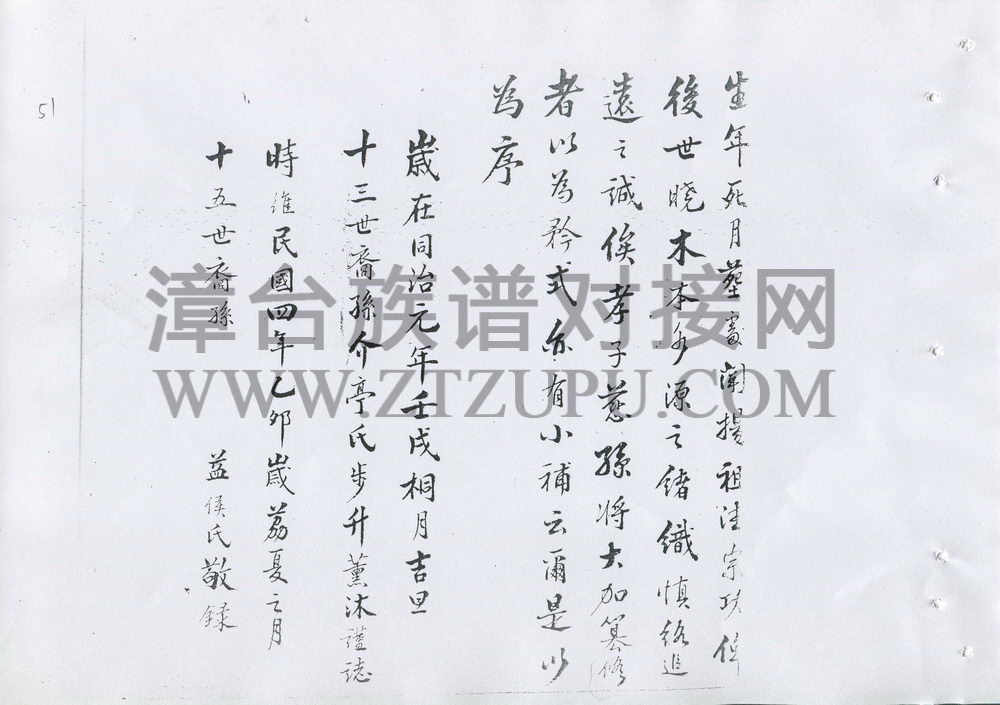 生年死月墓處闡揚祖德宗功俾
後世曉木本水源之緒識慎終追
遠之誠俟孝子慈孫將大加纂修
者以為矜式亦有小補云爾是以
為序
歲在同治元年壬戌桐月吉旦
十三世裔孫介亭氏步升薰沐謹誌
時維民國四年乙卯歲荔夏之月
十五世裔孫 益侯氏敬錄
51
漳台族谱对接网
WWW.ZTZUPU.COM